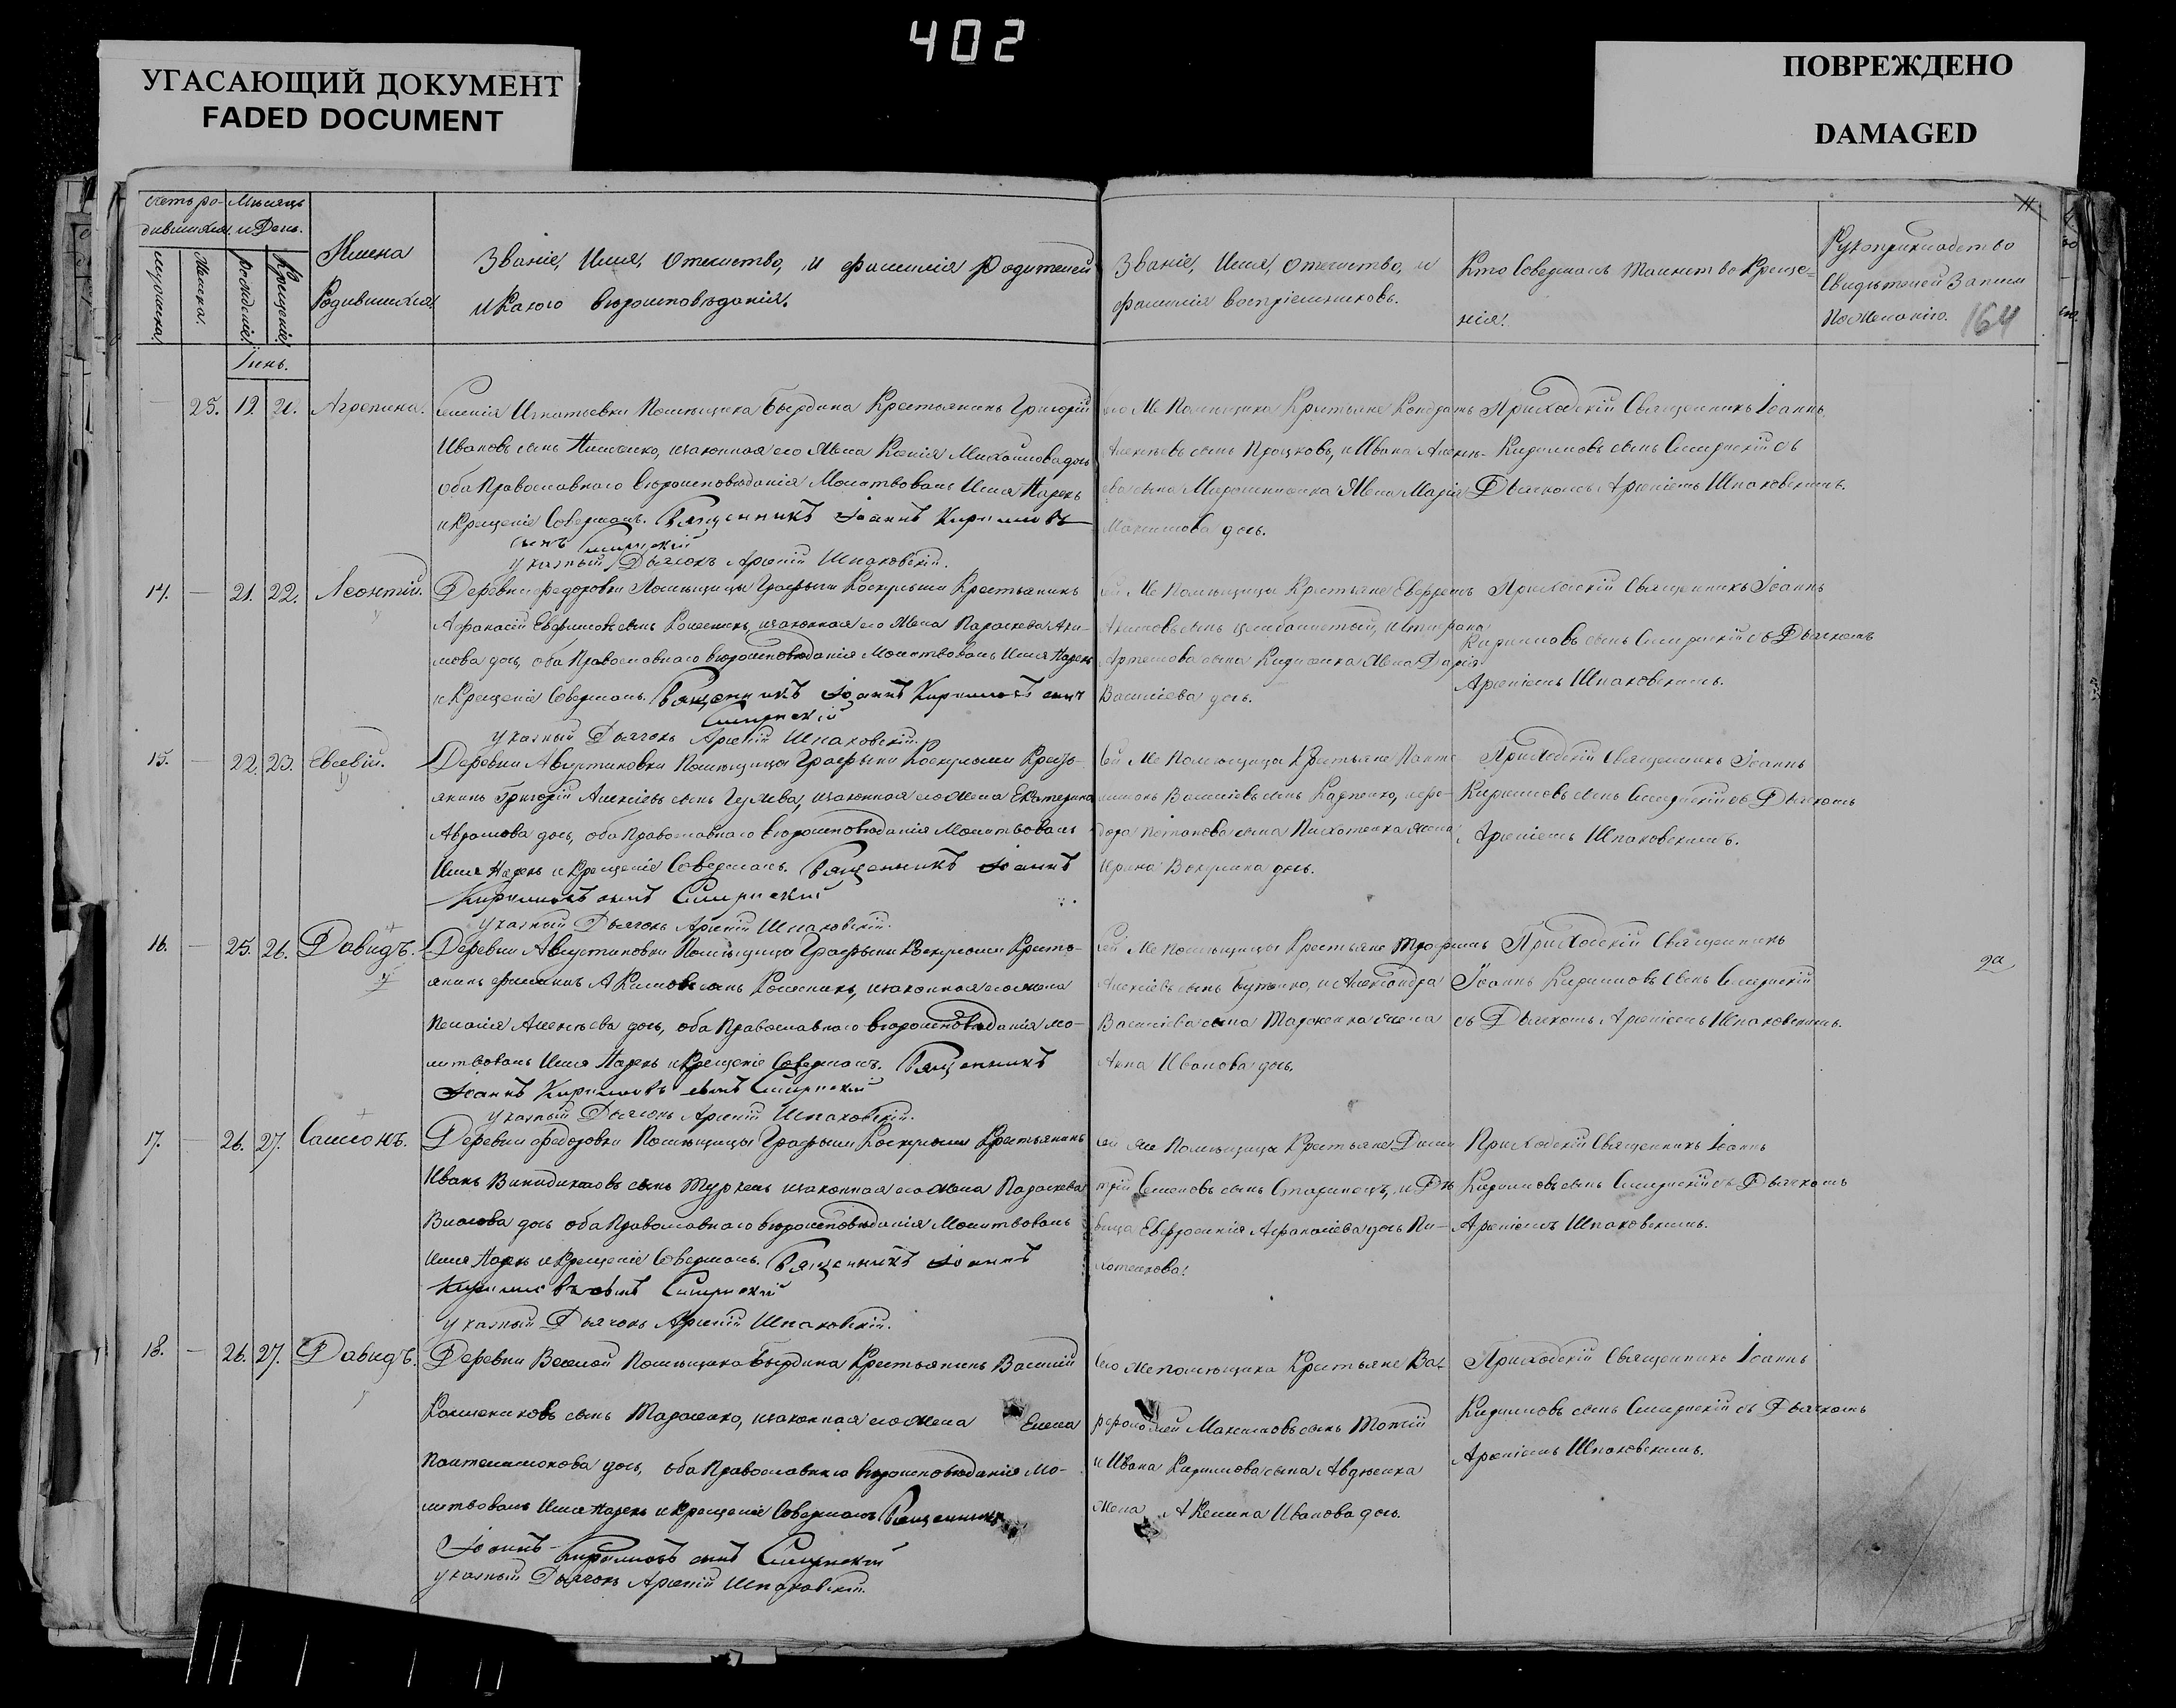 402
УГАСАЮЩИЙ ДОКУМЕНТ
FADED DOCUMENT
ПОВРЕЖДЕНО
DAMAGED
Счетъ ро-
дившихся.
Мѣсяцъ
и День.
мужеска.
Женска.
рожденіе.
Крещеніе.
Имена
Родившихся.
Званіе, Имя, Отечество, и фамилія родителей
и Какого вѣроисповѣданія.
Званіе, Имя, Отечество, и
фамилія воспріемниковъ.
Кто Совершалъ таинство Креще-
нія.
Рукоприкладство
Свидѣтелей Записи
По Желанію.
164
11
Іюнь.
— 25. 19. 21. Агрепина.
Помѣщика Бырдина Крестьянинъ Григорій
Ивановъ сынъ законная его Жена Ксенія Михайлова дочь
оба Православнаго вѣроисповѣданія Молитвовалъ Имя Нарекъ
и Крещеніе Совершалъ. Священникъ Іоаннъ Кирилловъ
сынъ
указный Дьячокъ Арсеній Шпаковскій.
его Же Помѣщика Крестьяне Кондратъ
Алексѣевъ сынъ Процковъ, и Ивана
сына Мирошниченка Жена Марія
Максимова дочь.
Приходскій Священникъ Іоаннъ
Кирилловъ сынъ съ
Дьячкомъ Арсеніемъ Шпаковскимъ.
14. — 21. 22. Леонтій.
Деревни Федоровки Помѣщицы Графыни Крестьянинъ
Афанасій сынъ Колесникъ, законная его Жена Параскева Аки-
мова дочь, оба Православнаго вѣроисповѣданія Молитвовалъ Имя Нарекъ
и Крещеніе Совершалъ. Священникъ Іоаннъ Кирилловъ сынъ
указный Дьячокъ Арсеній Шпаковскій.
ей Же Помѣщицы Крестьяне Ефремъ
Акимовъ сынъ
Артемова сына Жена Дарія
Васильева дочь.
Приходскій Священникъ Іоаннъ
Кирилловъ сынъ съ Дьячкомъ
Арсеніемъ Шпаковскимъ.
15. — 22. 23. Евсевій.
Деревни Августиновки Помѣщицы Графыни Кресть-
янинъ Григорій Алексѣевъ сынъ законная его Жена Екатерина
Аврамова дочь, оба Православнаго вѣроисповѣданія Молитвовалъ
Имя Нарекъ и Крещеніе Совершалъ. Священникъ Іоаннъ
Кирилловъ сынъ
указный Дьячокъ Арсеній Шпаковскій.
сей Же Помѣщицы Крестьяне Панте-
лимонъ Васильевъ сынъ Карпенко, и Фео-
дора Потапова сына Пихотенка жена
Ирина Вакулина дочь.
Приходскій Священникъ Іоаннъ
Кирилловъ сынъ съ Дьячкомъ
Арсеніемъ Шпаковскимъ.
16. — 25. 26. Давидъ.
Деревни Августиновки Помѣщицы Графыни Кресть-
янинъ Филипъ Акимовъ сынъ Колесникъ, законная его жена
Пелагія Алексѣева дочь, оба Православнаго вѣроисповѣданія мо-
литвовалъ Имя Нарекъ и Крещеніе Совершалъ. Священникъ
Іоаннъ Кирилловъ сынъ
указный Дьячокъ Арсеній Шпаковскій.
сей Же помѣщицы Крестьяне Трофимъ
Алексѣевъ сынъ Бутенко, и Александра
Васильева сына жена
Анна Иванова дочь.
Приходскій Священникъ
Іоаннъ Кирилловъ Сынъ
съ Дьячкомъ Арсеніемъ Шпаковскимъ.
17. — 26. 27. Самсонъ.
Деревни Федоровки Помѣщицы Графыни Крестьянинъ
Иванъ сынъ законная его Жена Параскева
Власова дочь оба Православнаго вѣроисповѣданія Молитвовалъ
Имя Нарекъ и Крещеніе Совершалъ. Священникъ Іоаннъ
Кирилловъ сынъ
указный Дьячокъ Арсеній Шпаковскій.
сей Же Помѣщицы Крестьяне Дими-
трій Семеновъ сынъ и Дѣ-
вица Евфросинія Афанасіева дочь Пи-
хотенкова.
Приходскій Священникъ Іоаннъ
Кирилловъ сынъ съ Дьячкомъ
Арсеніемъ Шпаковскимъ.
18. — 26. 27. Давидъ.
Деревни Веселой Помѣщика Бырдина Крестьянинъ Василій
сынъ Тарасенко, законная его Жена Елена
Пантелимонова дочь, оба Православнаго вѣроисповѣданія Мо-
литвовалъ Имя Нарекъ и Крещеніе Совершалъ Священникъ
Іоаннъ Кирилловъ сынъ
указный Дьячокъ Арсеній Шпаковскій.
его Же помѣщика Крестьяне Вар-
фоломей Максимовъ сынъ
и Ивана Кирилова сына Авдѣенка
Жена Акилина Иванова дочь.
Приходскій Священникъ Іоаннъ
Кирилловъ сынъ съ Дьячкомъ
Арсеніемъ Шпаковскимъ.